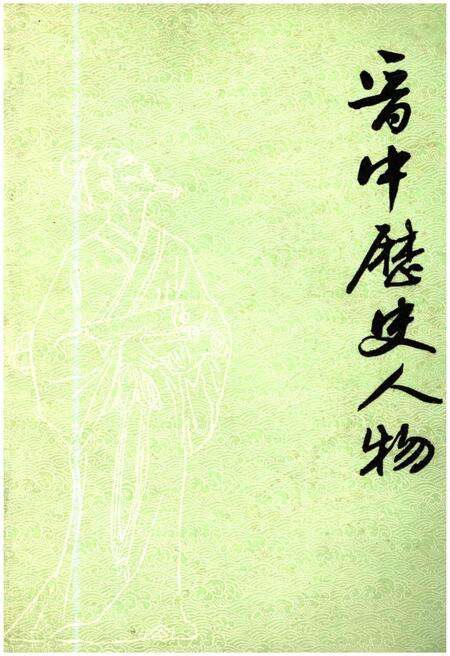 晋中歷史人物